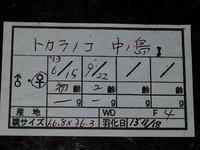 トカラノコ 中ノ島
'13
6/15 9/22 / / /
♂・♀ 初齢 2齢 齢 齢 齢
－g －g g g g
産地 WD F 4
親サイズ 66.8×36.3 羽化日 13 11/18